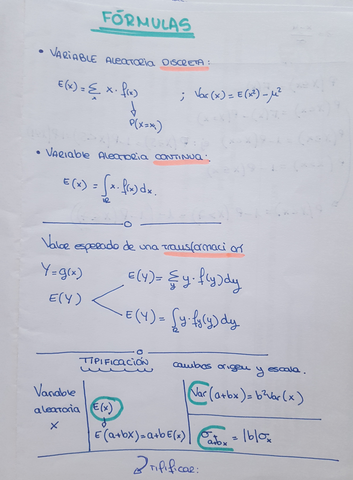 FÓRMULAS
• VARIABLE ALEATORIA DISCRETA:
E(x) = Σ x · f(x) ; Var(x) = E(x²) - μ²
x
P(X=xᵢ)
• VARIABLE ALEATORIA CONTINUA:
E(x) = ∫ x · f(x) dx.
ℝ
Valor esperado de una transformación
Y = g(x)
E(Y) = Σ y · f(y) dy
y
E(Y)
E(Y) = ∫ y · fy(y) dy
ℝ
TIPIFICACIÓN cambios origen y escala.
Variable aleatoria x
E(x)
E(a+bx) = a+b E(x)
Var(a+bx) = b² Var(x)
σ a+bx = |b| σx
Tipificar: